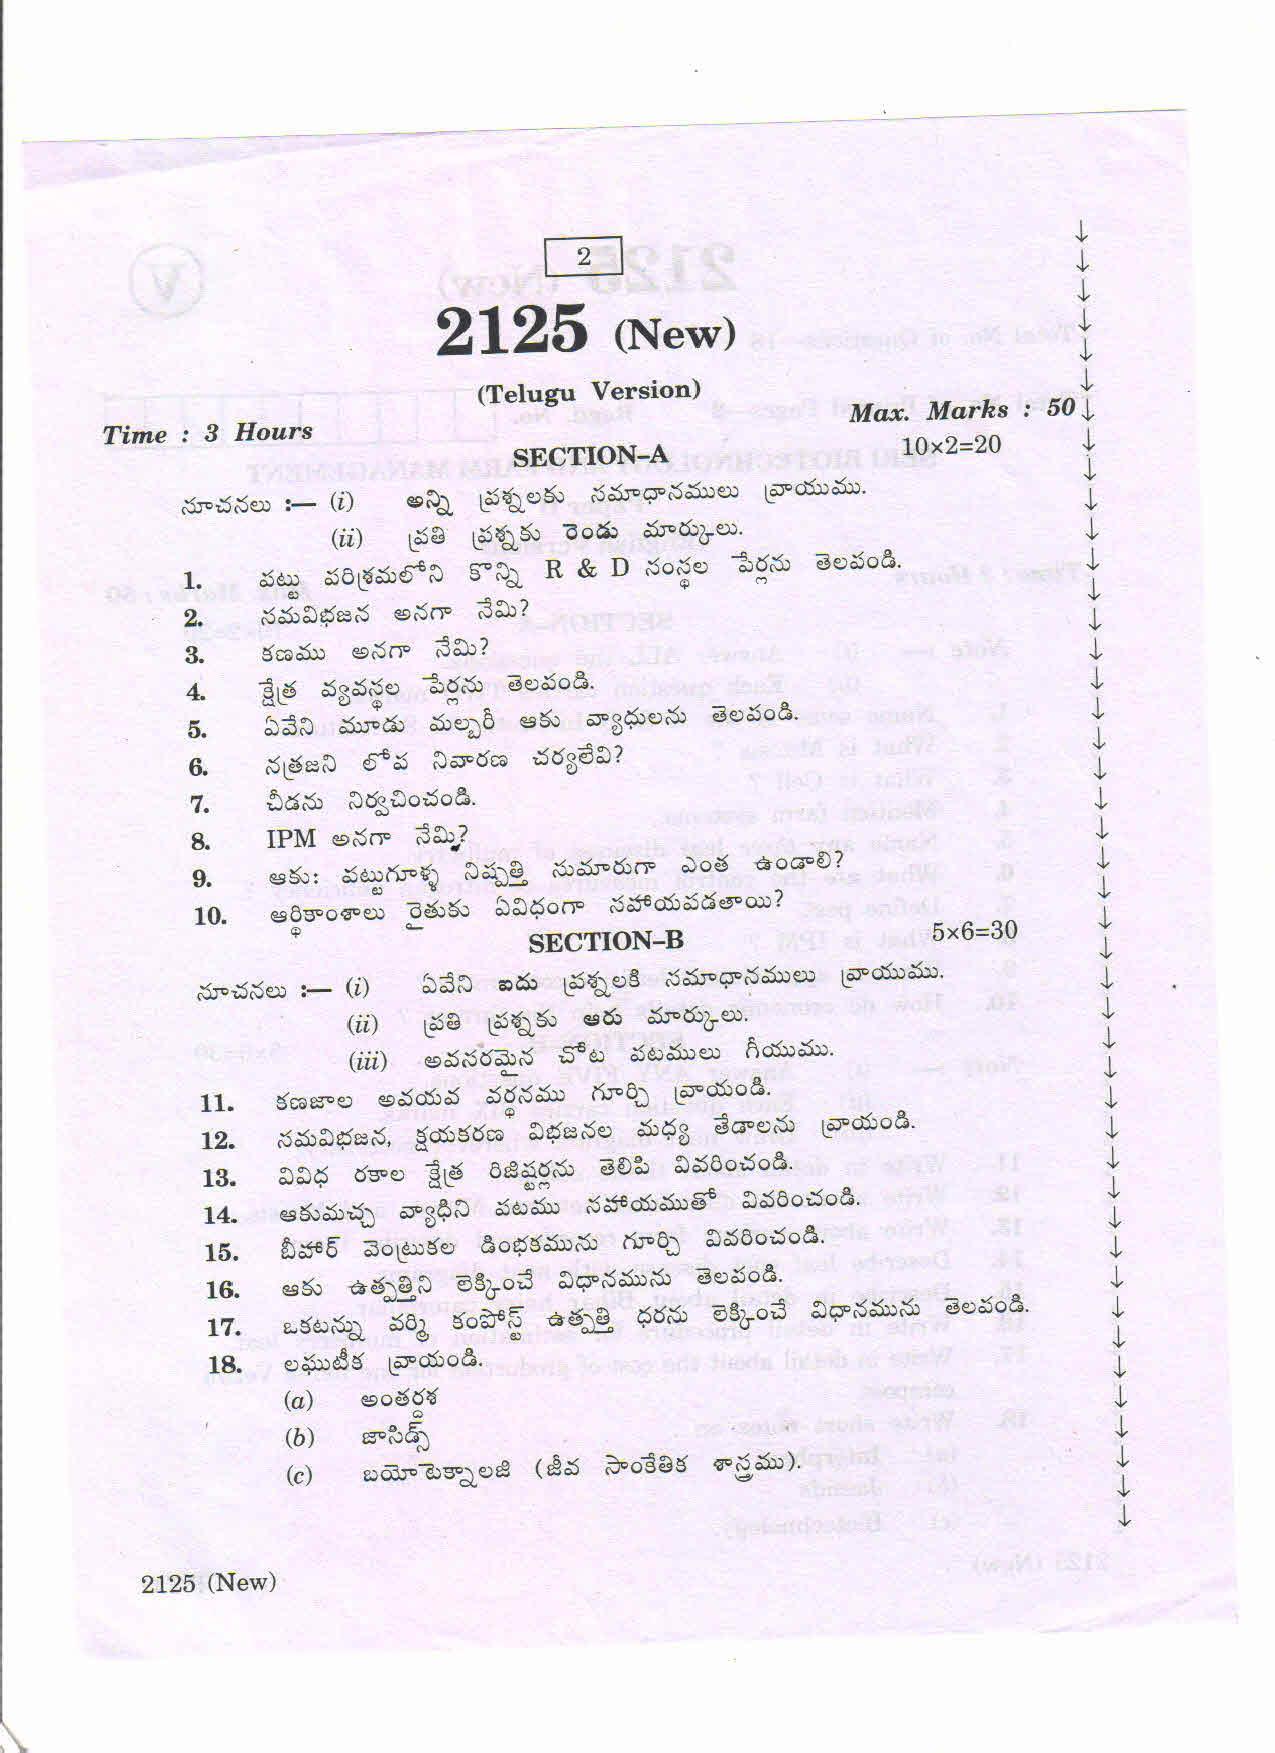 2
2125 (New)
(Telugu Version)
Time : 3 Hours Max. Marks : 50
SECTION–A 10×2=20
సూచనలు :— (i) అన్ని ప్రశ్నలకు సమాధానములు వ్రాయుము.
(ii) ప్రతి ప్రశ్నకు రెండు మార్కులు.
1. పట్టు పరిశ్రమలోని కొన్ని R & D సంస్థల పేర్లను తెలపండి.
2. సమవిభజన అనగా నేమి?
3. కణము అనగా నేమి?
4. క్షేత్ర వ్యవస్థల పేర్లను తెలపండి.
5. ఏవేని మూడు మల్బరీ ఆకు వ్యాధులను తెలపండి.
6. నత్రజని లోప నివారణ చర్యలేవి?
7. చీడను నిర్వచించండి.
8. IPM అనగా నేమి?
9. ఆకు: పట్టుగూళ్ళ నిష్పత్తి సుమారుగా ఎంత ఉండాలి?
10. ఆర్థికాంశాలు రైతుకు ఏవిధంగా సహాయపడతాయి?
SECTION–B 5×6=30
సూచనలు :— (i) ఏవేని ఐదు ప్రశ్నలకి సమాధానములు వ్రాయుము.
(ii) ప్రతి ప్రశ్నకు ఆరు మార్కులు.
(iii) అవసరమైన చోట పటములు గీయుము.
11. కణజాల అవయవ వర్థనము గూర్చి వ్రాయండి.
12. సమవిభజన, క్షయకరణ విభజనల మధ్య తేడాలను వ్రాయండి.
13. వివిధ రకాల క్షేత్ర రిజిష్టర్లను తెలిపి వివరించండి.
14. ఆకుమచ్చ వ్యాధిని పటము సహాయముతో వివరించండి.
15. బీహార్ వెంట్రుకల డింభకమును గూర్చి వివరించండి.
16. ఆకు ఉత్పత్తిని లెక్కించే విధానమును తెలపండి.
17. ఒకటన్ను వర్మి కంపోస్ట్ ఉత్పత్తి ధరను లెక్కించే విధానమును తెలపండి.
18. లఘుటీక వ్రాయండి.
(a) అంతర్దశ
(b) జాసిడ్స్
(c) బయోటెక్నాలజి (జీవ సాంకేతిక శాస్త్రము).
2125 (New)